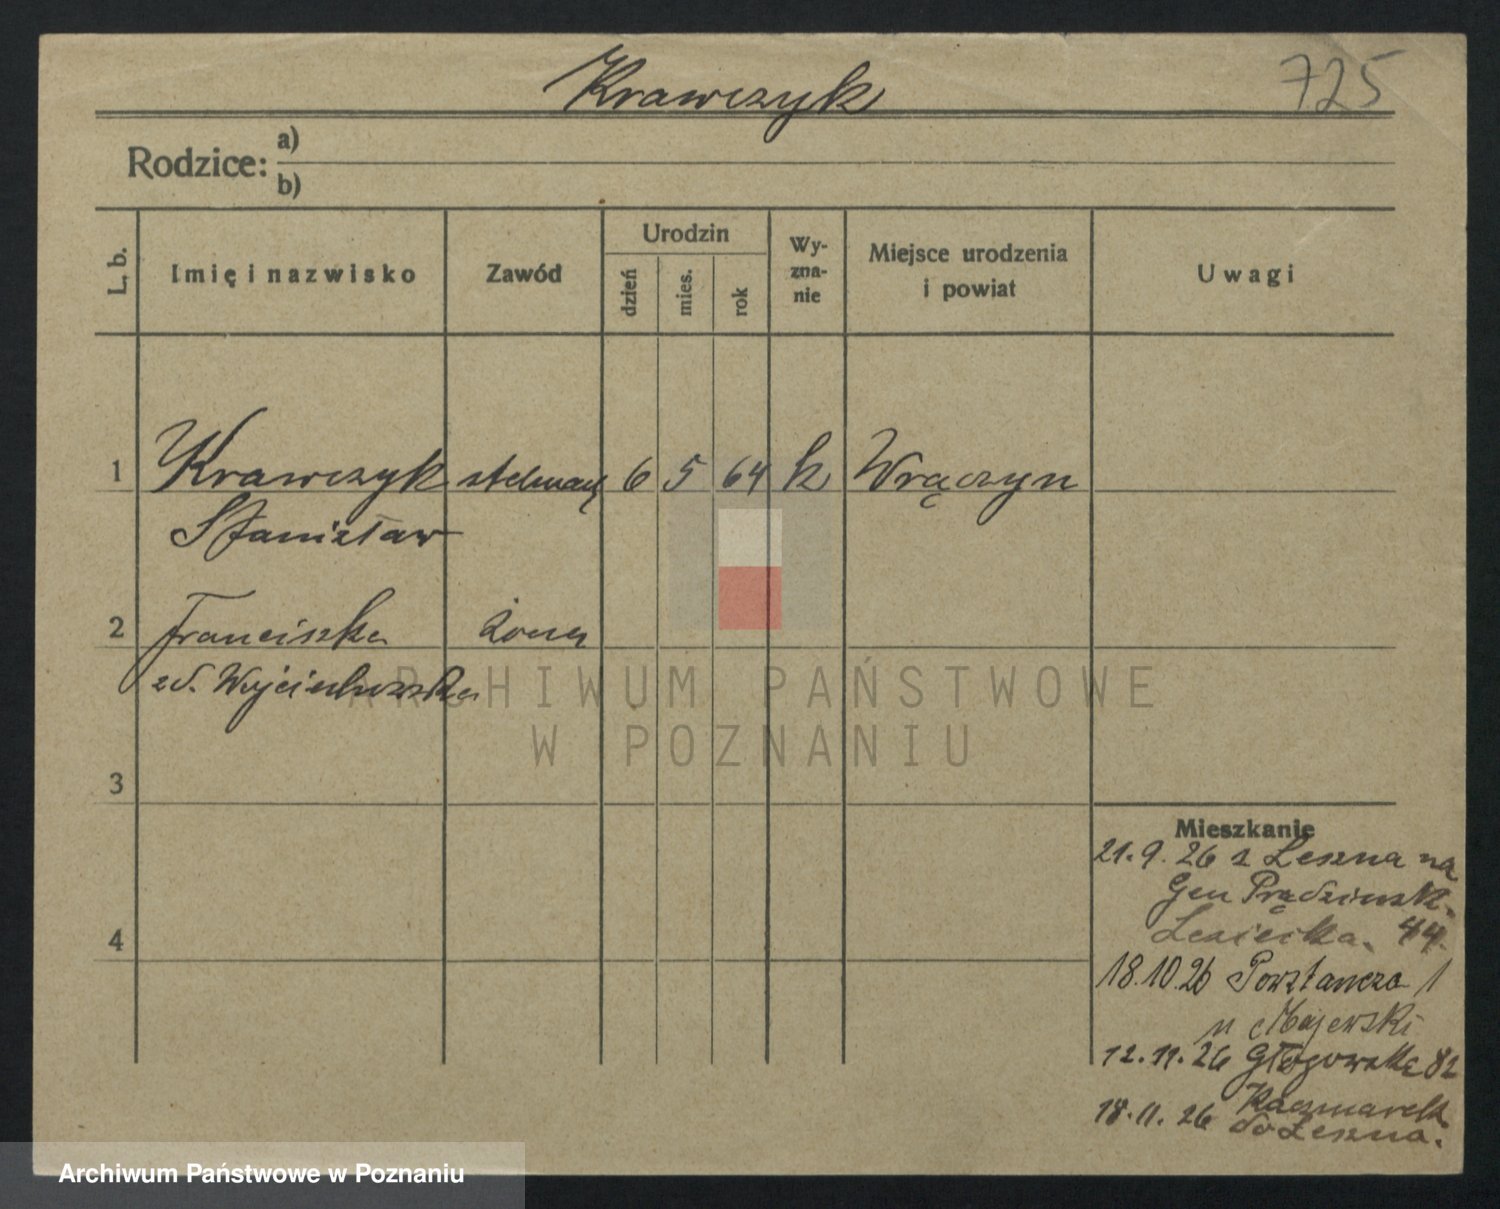 Krawczyk
725
Rodzice: a)
b)
L. b.
Imię i nazwisko
Zawód
Urodzin
dzień
mies.
rok
Wy-
zna-
nie
Miejsce urodzenia
i powiat
Uwagi
1 Krawczyk stelmach 6 5 64 k Wrączyn
Stanisław
2 Franciszka żona
zd. Wojciechowska
3
4
Mieszkanie
21.9.26 z Leszna na
Gen Prądzyńsk.
44.
18.10.26 Powstańcza 1
u Majewski
12.11.26 Głogowska 82
Kaczmarek
18.11.26 do Leszna.
ARCHIWUM PAŃSTWOWE
W POZNANIU
Archiwum Państwowe w Poznaniu